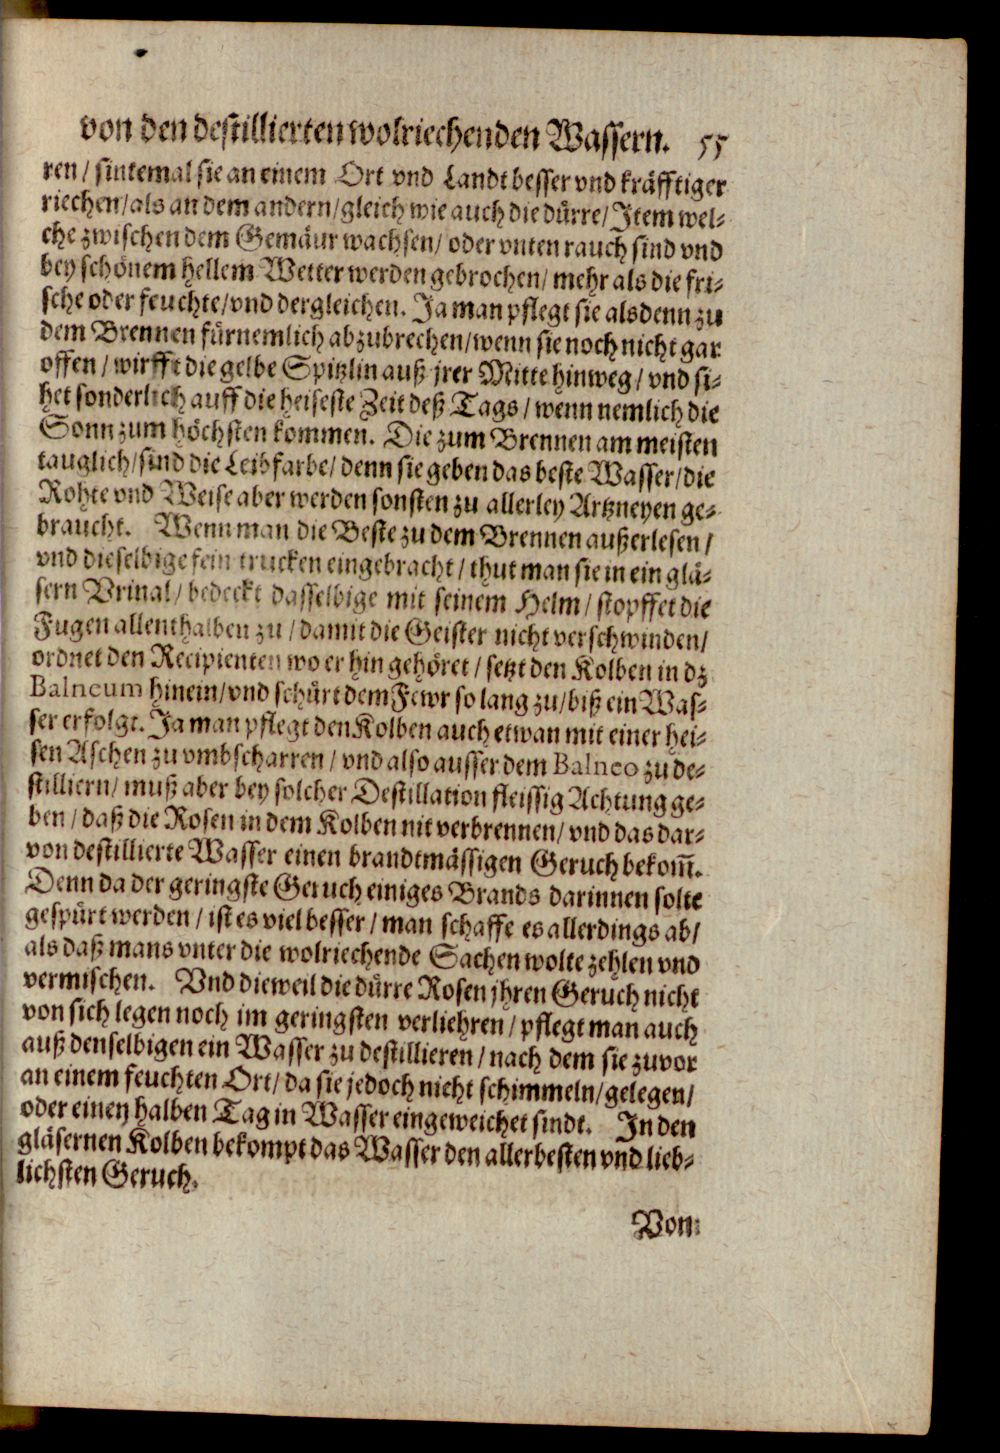 von den destillierten wolriechenden Wassern. 55
ren / sintemal sie an einem Ort vnd Landt besser vnd kräfftiger
riechen / als an dem andern / gleich wie auch die dürre / Item wel-
che zwischen dem Gemäur wachsen / oder vnten rauch sind vnd
bey schönem hellem Wetter werden gebrochen / mehr als die fri-
sche oder feuchte / vnd dergleichen. Ja man pflegt sie alsdenn zu
dem Brennen fürnemlich abzubrechen / wenn sie noch nicht gar
offen / wirfft die gelbe Spitzlin auß jrer Mitte hinweg / vnd si-
het sonderlich auff die heiseste Zeit deß Tags / wenn nemlich die
Sonn zum höchsten kommen. Die zum Brennen am meisten
tauglich / sind die Leibfarbe / denn sie geben das beste Wasser / die
Rohte vnd Weise aber werden sonsten zu allerley Artzneyen ge-
braucht. Wenn man die Beste zu dem Brennen außerlesen /
vnd dieselbige fein trucken eingebracht / thut man sie in ein glä-
sern Vrinal / bedeckt dasselbige mit seinem Helm / stopffet die
Fugen allenthalben zu / damit die Geister nicht verschwinden /
ordnet den Recipienten wo er hin gehöret / setzt den Kolben in dz
Balneum hinein / vnd schürt dem Fewr so lang zu / biß ein Was-
ser erfolgt. Ja man pflegt den Kolben auch etwan mit einer hei-
sen Aschen zu vmbscharren / vnd also ausser dem Balneo zu de-
stilliern / muß aber bey solcher Destillation fleissig Achtung ge-
ben / daß die Rosen in dem Kolben nit verbrennen / vnd das dar-
von destillierte Wasser einen brandtmässigen Geruch bekom̃.
Denn da der geringste Geruch einiges Brands darinnen solte
gespürt werden / ist es viel besser / man schaffe es allerdings ab /
als daß mans vnter die wolriechende Sachen wolte zehlen vnd
vermischen. Vnd dieweil die dürre Rosen jhren Geruch nicht
von sich legen noch im geringsten verliehren / pflegt man auch
auß denselbigen ein Wasser zu destillieren / nach dem sie zuvor
an einem feuchten Ort / da sie jedoch nicht schimmeln / gelegen /
oder einen halben Tag in Wasser eingeweichet sindt. In den
gläsernen Kolben bekompt das Wasser den allerbesten vnd lieb-
lichsten Geruch.
Von